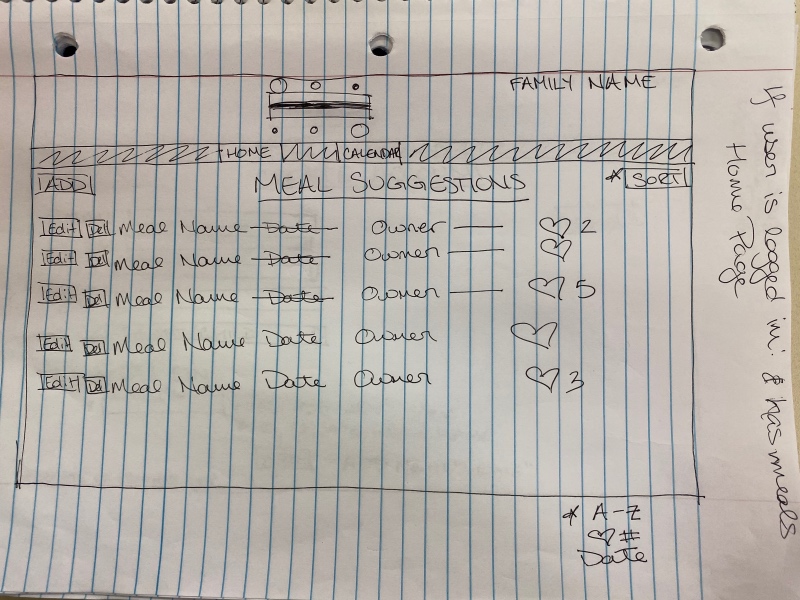 FAMILY NAME
HOME CALENDAR
ADD MEAL SUGGESTIONS * SORT
Edit Del Meal Name Date Owner ♡ 2
Edit Del Meal Name Date Owner ♡
Edit Del Meal Name Date Owner ♡ 5
Edit Del Meal Name Date Owner ♡
Edit Del Meal Name Date Owner ♡ 3
* A-Z
♡ #
Date
If user is logged in: & has meals
Home Page